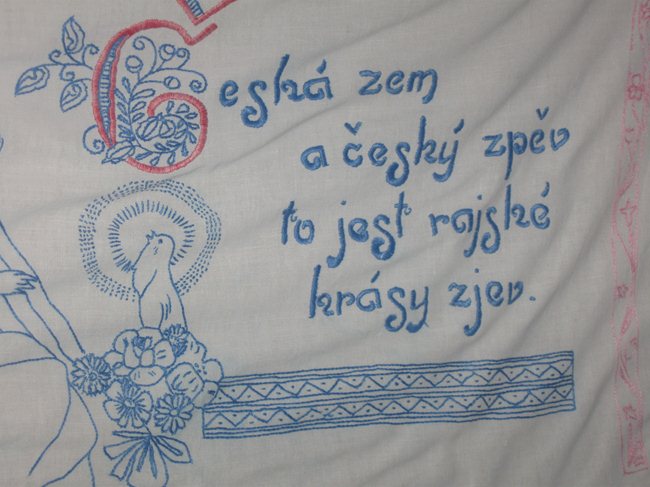 Česká zem
a český zpěv
to jest rajské
krásy zjev.